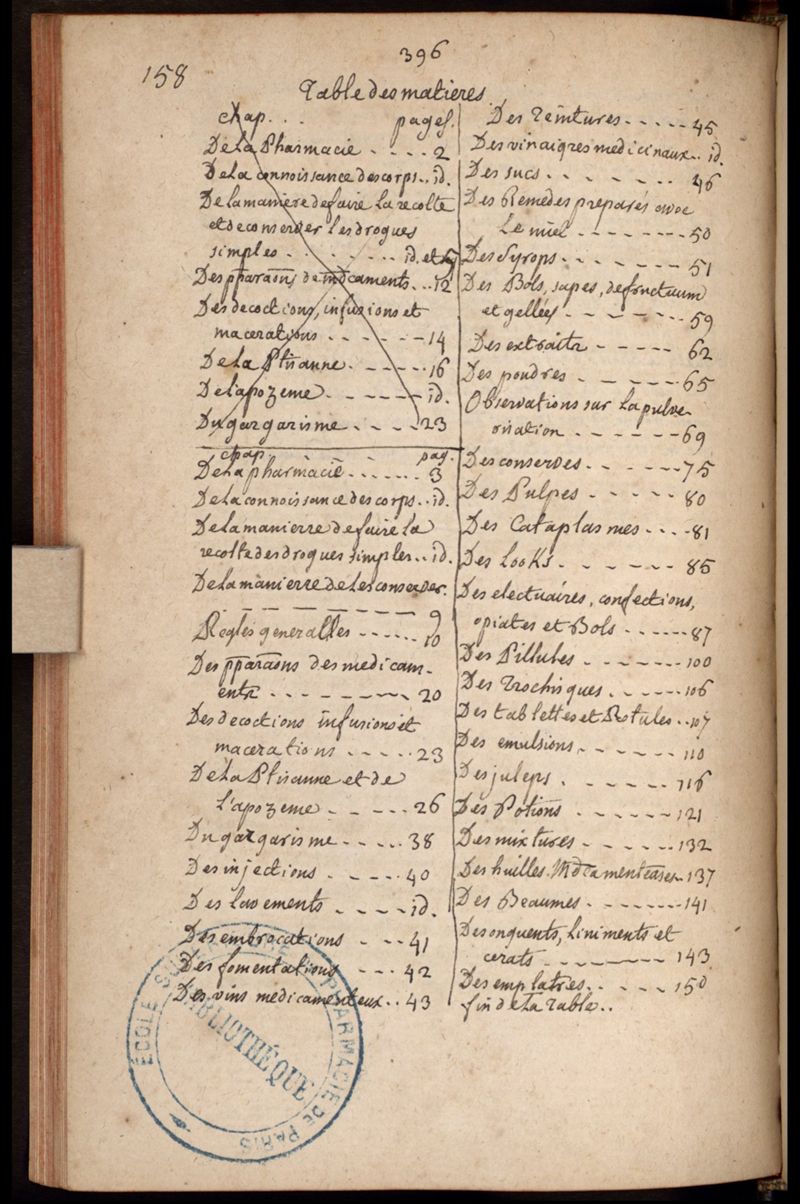 158
396
Table des matieres
chap. . . pages.
De la Pharmacie . . . . 2
De la connoissance des corps . . id.
De la maniere de faire la recolte
et de conserver les drogues
simples . . . . . . . . id. et 5
Des pparaôns de mdcaments . . 12
Des decoctions, infusions et
macerations . . . . . . 14
De la Ptisanne . . . . . 16
De l'apozeme . . . . . . id.
Du gargarisme . . . . 23
chap. . . . pag.
De la pharmacie . . . . . . 3
De la connoissance des corps . . id.
De la manierre de faire la
recolte des drogues simples . . id.
De la manierre de les conserver.
. . . . . . . 9
Regles generalles . . . . . . 10
Des pparaôns des medicam-
ents . . . . . . . . . 20
Des decoctions infusions et
macerations . . . . . 23
De la Ptisanne et de
L'apozeme . . . . . . 26
Du gargarisme . . . . . 38
Des injections . . . . . 40
Des lavements . . . . id.
Des embrocations . . . 41
Des fomentations . . . 42
Des vins medicamenteux . . 43
Des Teintures . . . . . 45
Des vinaigres medicinaux . . id.
Des sucs . . . . . . . 46
Des Remedes preparés avec
Le miel . . . . . . . . 50
Des Syrops . . . . . . . 51
Des Bols, sapes, defructuum
et gellées . . . . . . . . 59
Des extraits . . . . . 62
Des poudres . . . . . . 65
Observations sur la pulve-
risation . . . . . . . 69
Des conserves . . . . . . 75
Des Pulpes . . . . . 80
Des Cataplasmes . . . . 81
Des Looks . . . . . . . 85
Des electuaires, confections,
opiates et Bols . . . . . . 87
Des Pillules . . . . . . . 100
Des Trochisques . . . . . . 106
Des tablettes et Rotules . . 107
Des emulsions . . . . . . . 110
Des juleps . . . . . . 116
Des Potions . . . . . . 121
Des mixtures . . . . . . 132
Des huilles mdcamenteuses . . 137
Des Beaumes . . . . . . . 141
Des onguents, Liniments et
cerats . . . . . . . . 143
Des emplatres . . . . . 150
fin de la Table . .
ÉCOLE SUP DE PHARMACIE DE PARIS
BIBLIOTHÈQUE